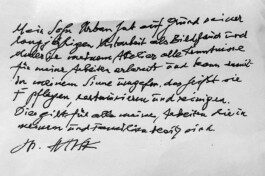 Mein Sohn Urban hat auf Grund seiner
langjährigen Mitarbeit als Bildhauer und
Maler in meinem Atelier alle Kenntnisse
für meine Arbeiten erlernt und kann somit
in meinem Sinne
pflegen, restaurieren und reinigen.
Dies gilt für alle meine Arbeiten die in
meinem und Familien sind